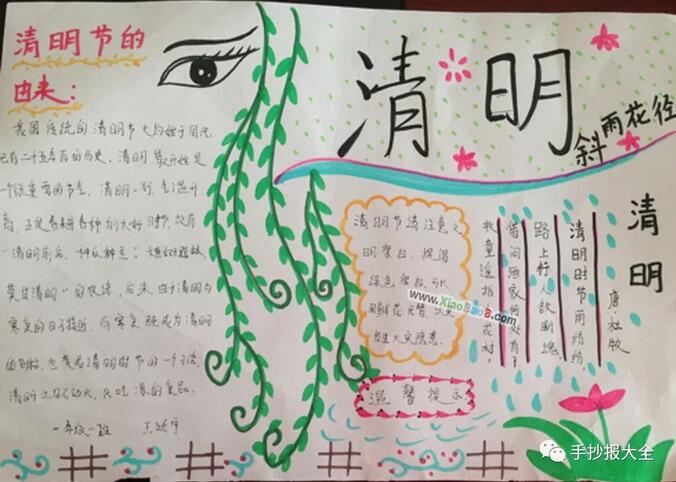 清明节的
由来:
我国传统的清明节大约始于周代
已有二千五百多年的历史。清明最开始是
一个很重要的节气,清明一到,气温升
高,正是春耕春种的大好时节,故有
"清明前后,种瓜种豆"。植树造林
莫过清明"的农谚。后来,由于清明与
寒食的日子接近,而寒食
是清明时节的一个习俗,
清明之日不动火,只吃凉的食品。
一年级一班
清明
斜雨花径
清明节请注意文
明祭扫,提倡
绿色祭扫,可以
用鲜花
火灾隐患。
温馨提示
清明
唐·杜牧
清明时节雨纷纷,
路上行人欲断魂。
借问酒家何处有?
牧童遥指杏花村。
www.XiaoBaoB.com
手抄报大全